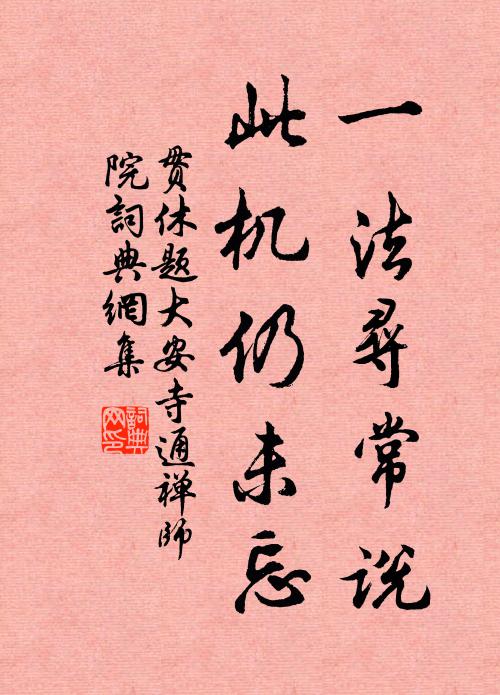 一法尋常説
此机仍未忘
贯休题大安寺通禅师
院詞典網集
詞典
网印